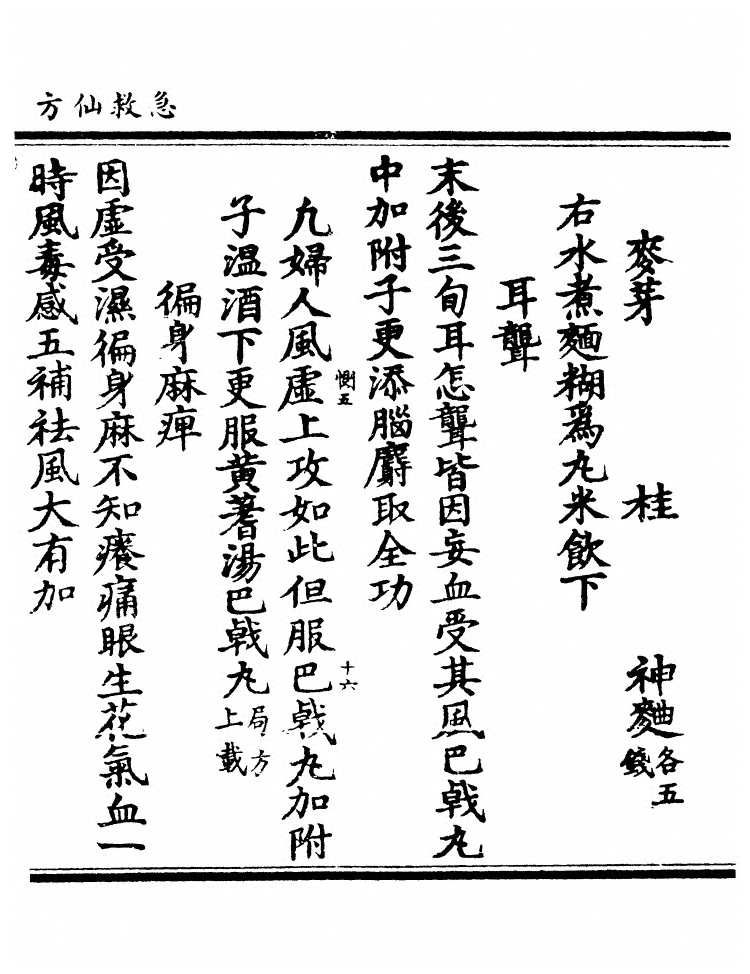 急救仙方
麥芽　桂　神麯各五錢
右水煮麵糊為丸米飲下
耳聾
末後三旬耳怎聾皆因妄血受其風巴戟丸
中加附子更添腦麝取全功
惻五
十六
凢婦人風虛上攻如此但服巴戟丸加附
子温酒下更服黄蓍湯巴戟丸局方上載
徧身麻痺
因虛受濕徧身麻不知癢痛眼生花氣血一
時風毒感五補祛風大有加